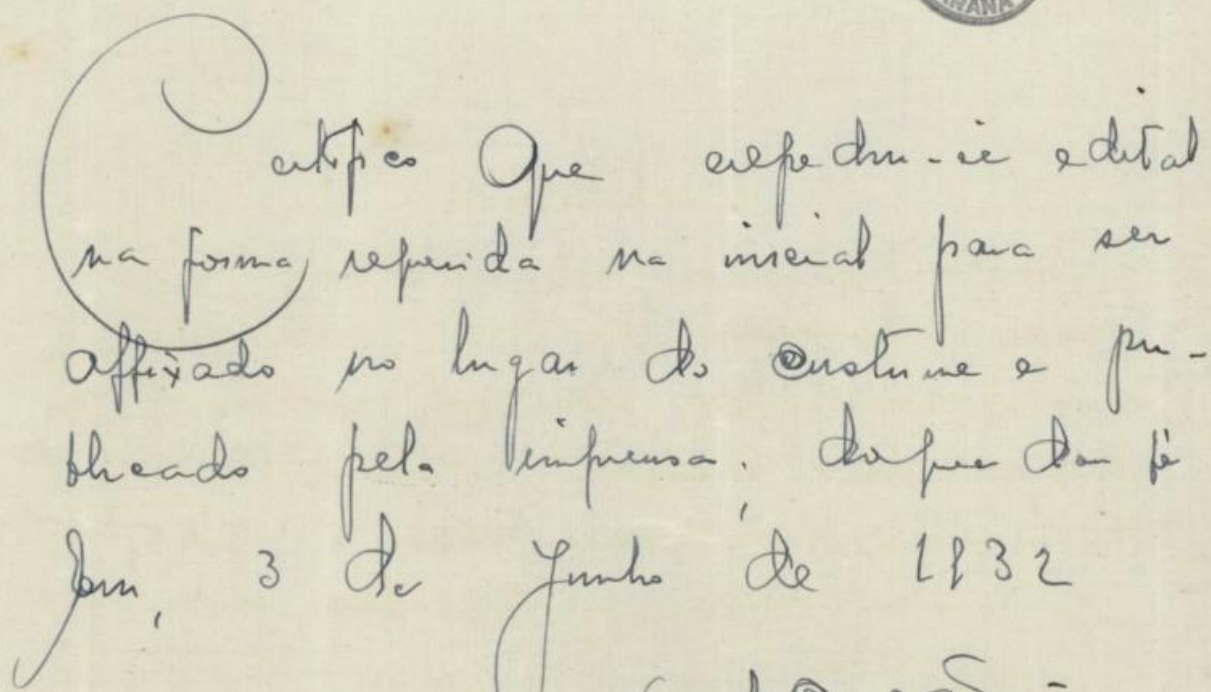 PARANÁ
Certifico que expediu-se edital
na forma referida na inicial para ser
affixado no lugar do costume e pu-
blicado pela imprensa, do que dou fé
Em, 3 de Junho de 1932